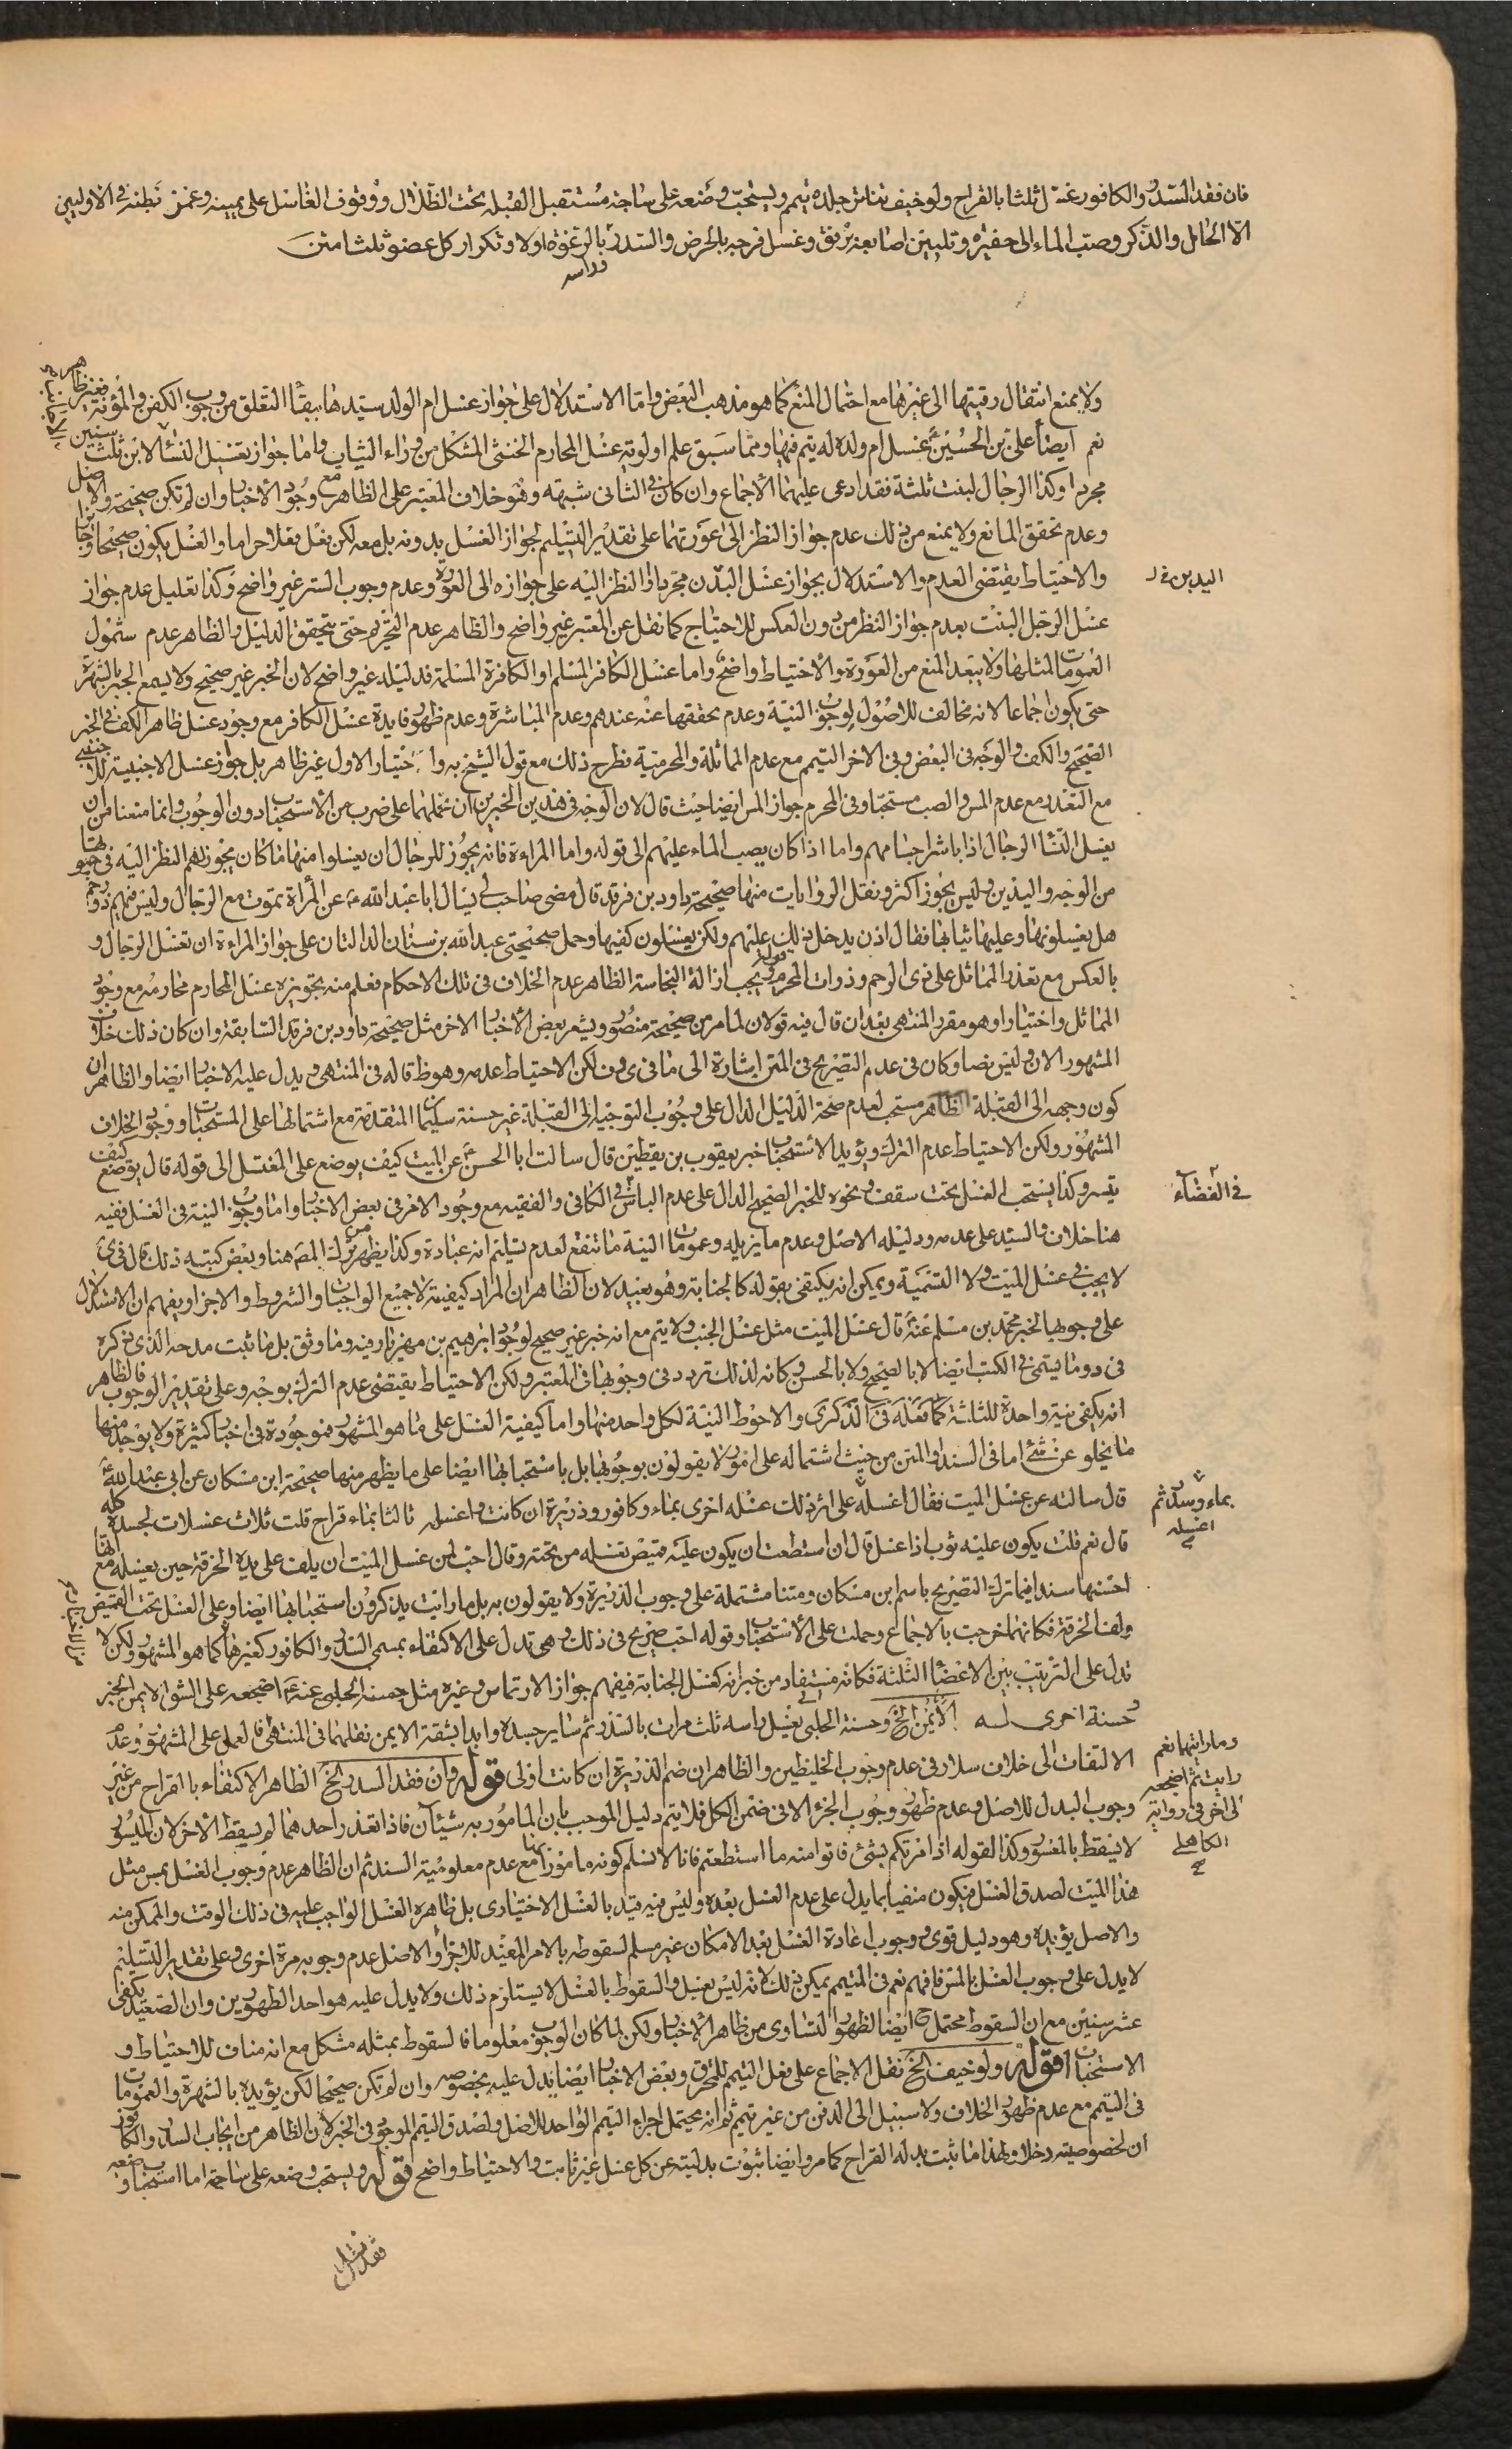 فان فقد السدر والكافور غسل ثلثا بالقراح ولو خيف تناثر جلده يتمم ويستحب وضعه على ساجة مستقبل القبلة تحت الظلال ووقوف الغاسل على يمينه وغمز بطنه في الاوليين
الا الحامل والذكر وصب الماء الى حفيرة وتليين اصابعه برفق وغسل فرجه بالحرض والسدر بالرغوة اولا وتكرار كل عضو ثلثا
وراسه
ولا يمنع انتقال رقبتها الى غيرها مع احتمال المنع كما هو مذهب البعض واما الاستدلال على جواز غسل ام الولد سيدها ببقاء التعلق من وجوب الكفن والمؤنة فغير ظاهر
نعم ايضا على بن الحسين غسل ام ولده له يتم فيها ومما سبق علم اولوية غسل المحارم الخنثى المشكل من وراء الثياب واما جواز تغسيل النساء لابن ثلث سنين
مجردا وكذا الرجال لبنت ثلثة فقد ادعى عليهما الاجماع وان كان في الثانى شبهة وهو خلاف المعتبر على الظاهر مع وجود الاخبار وان لم تكن صحيحة والاصل
وعدم تحقق المانع ولا يمنع من ذلك عدم جواز النظر الى عورتهما على تقدير التسليم لجواز الغسل بدونه بل معه لكن يفعل فعلا حراما والغسل يكون صحيحا
والاحتياط يقتضى العدم والاستدلال بجواز غسل البدن مجردا والنظر اليه على جوازه الى العورة وعدم وجوب الستر غير واضح وكذا تعليل عدم جواز
اليدين
غسل الرجل البنت بعدم جواز النظر من دون العكس للاحتياج كما نقل عن المعتبر غير واضح والظاهر عدم التحريم حتى يتحقق الدليل والظاهر عدم شمول
العمومات لمثلها ولا يبعد المنع من العورة والاحتياط واضح واما غسل الكافر المسلم او الكافرة المسلمة فدليله غير واضح لان الخبر غير صحيح ولا يسمع الجبر بالشهرة
حتى يكون اجماعا لانه مخالف للاصول لوجوب النية وعدم تحققها عنه عندهم وعدم المباشرة وعدم ظهور فايدة غسل الكافر مع وجود غسل ظاهر الكف في الخبر
الصحيح والكف والوجه فى البعض وفى الاخر التيمم مع عدم المماثلة والمحرمية فطرح ذلك مع قول الشيخ به واختيار الاول غير ظاهر بل جواز غسل الاجنبية للاجنبي
مع التعذر مع عدم المس والصب مستحبا وفى المحرم جواز المس ايضا حيث قال لان الوجه فى هذين الخبرين ان نحملهما على ضرب من الاستحباب دون الوجوب وانما منعنا من ان
يغسل النساء الرجال اذا باشر اجسامهم واما اذا كان يصب الماء عليهم الى قوله واما المراءة فانه يجوز للرجال ان يغسلوا منها ما كان يجوز لهم النظر اليه فى حيوتها
من الوجه واليدين وليس يجوز اكثر ونقل الروايات منها صحيحة داود بن فرقد قال مضى صاحب لى يسال ابا عبد الله ع عن المرأة تموت مع الرجال وليس فيهم ذو محرم
هل يغسلونها وعليها ثيابها فقال اذن يدخل ذلك عليهم ولكن يغسلون كفيها وحمل صحيحتى عبد الله بن سنان الدالتان على جواز المراءة ان تغسل الرجال و
بالعكس مع تعذر المماثل على ذى الرحم وذوات المحرم قوله ويجب ازالة النجاسة الظاهر عدم الخلاف فى تلك الاحكام فعلم منه تجويزه غسل المحارم محارمه مع وجود
المماثل واختيارا وهو مقرد المنتهى بعد ان قال فيه قولان لما مر من صحيحة منصور ويشعر بعض الاخبار الاخر مثل صحيحة داود بن فرقد السابقة وان كان ذلك خلاف
المشهور الان وليس نصا وكان فى عدم التصريح فى المتن اشارة الى ما فى ى ولكن الاحتياط عدمه وهو ظ قاله فى المنتهى ويدل عليه الاخبار ايضا والظاهر ان
كون وجهه الى القبلة الظاهر مستحب لعدم صحة الدليل الدال على وجوب التوجيه الى القبلة غير حسنة سليمان المتقدمة مع اشتمالها على المستحبات ووجود الخلاف
المشهور ولكن الاحتياط عدم الترك ويؤيد الاستحباب خبر يعقوب بن يقطين قال سالت ابا الحسن ع عن الميت كيف يوضع على المغتسل الى قوله قال يوضع كيف
تيسر وكذا يستحب الغسل تحت سقف ونحوه للخبر الصحيح الدال على عدم الباس في الكافى والفقيه مع وجود الامر فى بعض الاخبار واما وجوب النية فى الغسل ففيه
في الفضاء
هنا خلاف والسيد على عدمه ودليله الاصل وعدم ما يزيله وعمومات النية ما تنفع لعدم تسليم انه عبادة وكذا يظهر من ترك المصر هنا وبعض كتبه ذلك قال في ى
لا يجب في غسل الميت ولا التسمية ويمكن انه يكتفى بقوله كالجنابة وهو بعيد لان الظاهر ان المراد كيفيته لا جميع الواجبات والشروط والاجزاء ويفهم ان الاستدلال
على وجوبها لخبر محمد بن مسلم عنه ع قال غسل الميت مثل غسل الجنب ولا يتم مع انه خبر غير صحيح لوجود ابرهيم بن مهزيار فيه وما وثق بل ما ثبت مدحه الذى ذكره
فى د وما يسمى فى الكتب ايضا لا بالصحيح ولا بالحسن وكانه لذلك تردد فى وجوبها فى المعتبر ولكن الاحتياط يقتضى عدم الترك بوجه وعلى تقدير الوجوب فالظاهر
انه يكفى نية واحدة للثلثة كما نقله فى الذكرى والاحوط النية لكل واحد منها واما كيفية الغسل على ما هو المشهور فموجودة فى اخبار كثيرة ولا يوجد منها
ما يخلو عن شئ اما فى السند او المتن من حيث اشتماله على امور لا يقولون بوجوبها بل باستحبابها ايضا على ما يظهر منها صحيحة ابن مسكان عن ابى عبد الله ع
قال سالته عن غسل الميت فقال اغسله على اثر ذلك غسله اخرى بماء وكافور وذريرة ان كانت واغسله ثالثا بماء قراح قلت ثلاث غسلات لجسده كله
بماء وسدر ثم
اغسله
قال نعم قلت يكون عليه ثوب اذا غسل قال ان استطعت ان يكون عليه قميص تغسله من تحته وقال احب لمن غسل الميت ان يلف على يده الخرقة حين يغسله مع انها
احسنها سندا فيما ترك التصريح باسم ابن مسكان ومتنا مشتملة على وجوب الذريرة ولا يقولون به بل ما رايت يذكرون استحبابها ايضا وعلى الغسل تحت القميص
ولف الخرقة فكانهما خرجت بالاجماع وحملت على الاستحباب وقوله احب صريح فى ذلك وهى تدل على الاكتفاء بمسمى السدر والكافور كغيرها كما هو المشهور ولكن لا
تدل على الترتيب بين الاعضاء الثلثة فكانه مستفاد من خبر انه كغسل الجنابة فيفهم جواز الارتماس وغيره مثل حسنة الحلبى عنه ع اضجعه على الشق الايمن الخبر
وحسنة اخرى له الايمن الخ وحسنة الحلبي يغسل راسه ثلث مرات بالسدر ثم ساير جسده وابدا بشقه الايمن نقلهما فى المنتهى فالعمل على المشهور وعدم
وما رايتها نعم
رايت ثم اضجعه
الى اخر فى رواية
الكاهلي
الالتفات الى خلاف سلار فى عدم وجوب الخليطين والظاهر ان ضم الذريرة ان كانت اولى قوله وان فقد السدر الخ الظاهر الاكتفاء بالقراح من غير
وجوب البدل للاصل وعدم ظهور وجوب الجزء الا فى ضمن الكل فلا يتم دليل الموجب بان المامور به شيئآن فاذا تعذر احدهما لم يسقط الاخر لان الميسور
لا يسقط بالمعسور وكذا القوله اذا امرتكم بشئ فاتوا منه ما استطعتم فانا لا نسلم كونه مامورا مع عدم معلومية السند ثم ان الظاهر عدم وجوب الغسل بمس مثل
هذا الميت لصدق الغسل فيكون منفيا بما يدل على عدم الغسل بعده وليس فيه قيد بالغسل الاختيارى بل ظاهره الغسل الواجب عليه فى ذلك الوقت والممكن منه
والاصل يؤيده وهو دليل قوى ووجوب اعادة الغسل بعد الامكان غير مسلم لسقوطه بالامر المفيد للاجزاء والاصل عدم وجوبه مرة اخرى وعلى تقدير التسليم
لا يدل على وجوب الغسل بالمس فافهم نعم فى المتيمم يمكن ذلك لانه ليس بغسل والسقوط بالغسل لا يستلزم ذلك ولا يدل عليه هو احد الطهورين وان الصعيد يكفى
عشر سنين مع ان السقوط محتمل ح ايضا لظهور التساوى من ظاهر الاخبار ولكن لما كان الوجوب معلوما فالسقوط بمثله مشكل مع انه مناف للاحتياط و
الاستحباب قوله ولو خيف الخ نقل الاجماع على فعل التيمم للمحترق وبعض الاخبار ايضا يدل عليه بخصوصه وان لم تكن صحيحا لكن يؤيده بالشهرة والعمومات
فى التيمم مع عدم ظهور الخلاف ولا سبيل الى الدفن من غير تيمم ثم انه يحتمل اجراء التيمم الواحد للاصل ولصدق التيمم الموجود فى الخبر لان الظاهر من ايجاب السدر والكافور
ان لخصوصيته دخلا ولهذا ما ثبت بدله القراح كما مر وايضا ثبوت بدليته عن كل غسل غير ثابت والاحتياط واضح قوله ويستحب وضعه على ساجة اما استحباب وضعه
فقد نقل